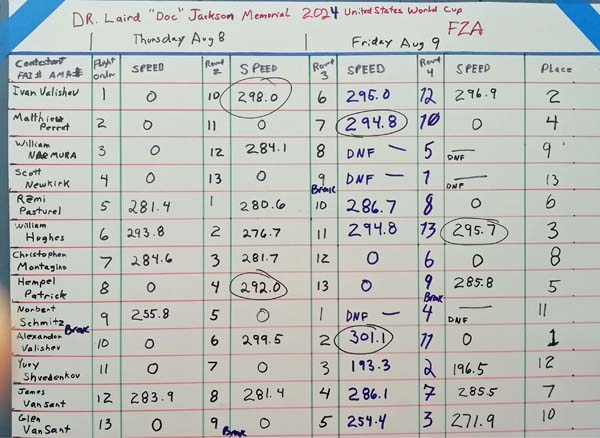 DR. Laird "Doc" Jackson Memorial 2024 United States World Cup
F2A
Thursday Aug 8 Friday Aug 9
Contestant FAI# AMA# Flight order SPEED Round 2 SPEED Round 3 SPEED Round 4 SPEED PLACE
Ivan Valishev 1 0 10 298.0 6 295.0 12 296.9 2
Matthieu Perret 2 0 11 0 7 294.8 10 0 4
William NAEMURA 3 0 12 284.1 8 DNF — 5 DNF — 9
Scott Newkirk 4 0 13 0 9 Break DNF — 1 DNF — 13
Rémi Pasturel 5 281.4 1 280.6 10 286.7 8 0 6
William Hughes 6 293.8 2 276.7 11 294.8 13 295.7 3
Christophen Montagino 7 284.6 3 281.7 12 0 6 0 8
Hempel Patrick 8 0 4 292.0 13 0 9 Break 285.8 5
Norbert Schmitz Break 9 255.8 5 0 1 DNF — 4 DNF — 11
Alexander Valishev 10 0 6 299.5 2 301.1 11 0 1
Yury Shvedenkov 11 0 7 0 3 193.3 2 196.5 12
James VanSant 12 283.9 8 281.4 4 286.1 7 285.5 7
Glen VanSant 13 0 9 Break 0 5 254.4 3 271.9 10